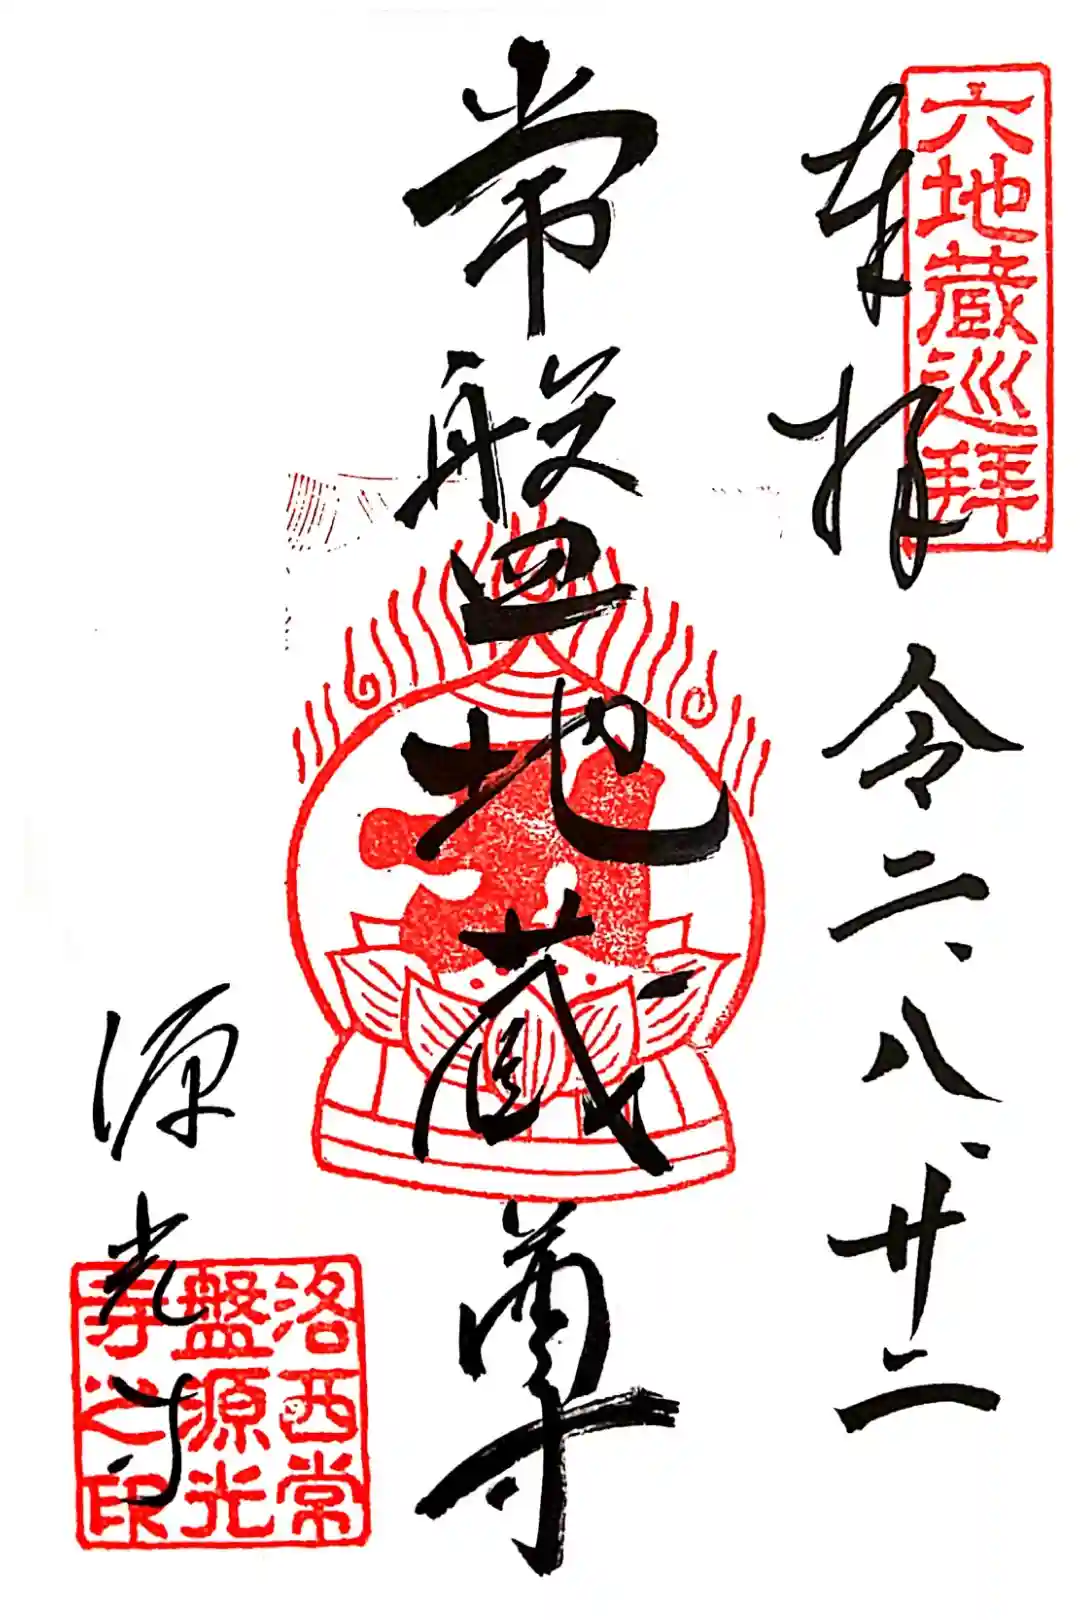 六地蔵巡拝
奉拝
令二、八、廿二
常盤地蔵尊
源光寺
洛西常
盤源光
寺之印